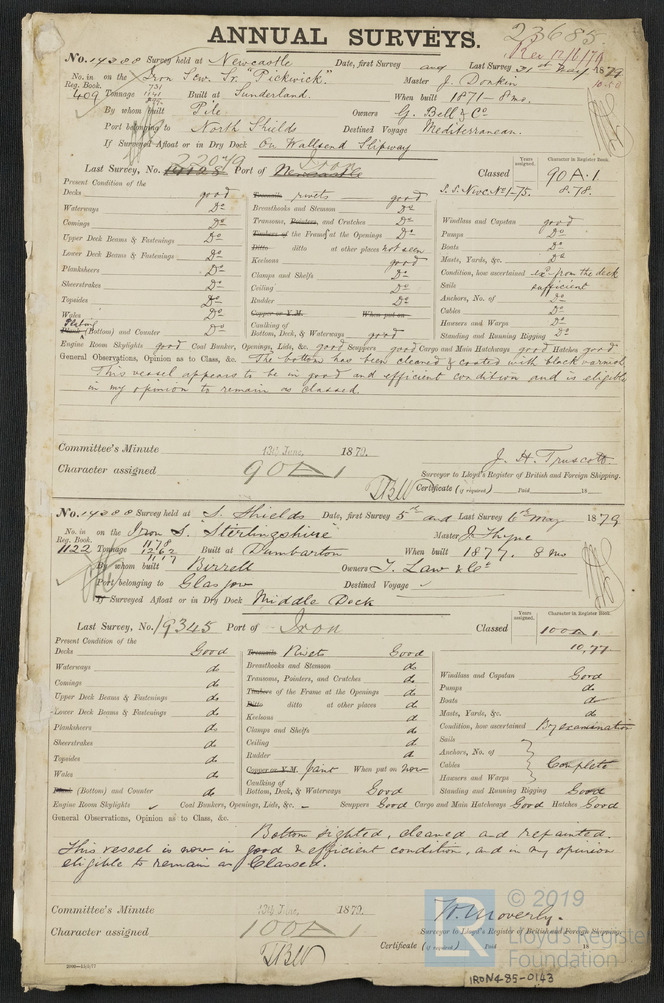 23685
ANNUAL SURVEYS.
Rec 12/6/79
No. 14288 Survey held at Newcastle Date, first Survey and Last Survey 31st May 1879
No. in Reg. Book. on the Iron Scw. Sr. "Pickwick." Master J. Donkin
409 Tonnage 731 1141 Built at Sunderland. When built 1871 - 8 mo.
By whom built Pile. Owners G. Bell & Co
Port belonging to North Shields Destined Voyage Mediterranean.
If Surveyed Afloat or in Dry Dock On Wallsend Slipway
Last Survey, No. 22049 Port of Newcastle Iron Classed
Years assigned. Character in Register Book.
90 A. 1
S.S. Nwc. No 1-75. 8.78.
Present Condition of the
Decks good rivets good
Waterways Do Breasthooks and Stemson Do Windlass and Capstan good
Comings Do Transoms, Pointers, and Crutches Do Pumps Do
Upper Deck Beams & Fastenings Do Timbers of the Frame at the Openings Do Boats Do
Lower Deck Beams & Fastenings Do Ditto ditto at other places not seen Masts, Yards, &c. Do
Planksheers Do Keelsons good Condition, how ascertained ex. from the deck
Sheerstrakes Do Clamps and Shelfs Do Sails sufficient
Topsides Do Ceiling Do Anchors, No. of Do
Wales Do Rudder Do Cables Do
Plating Plank (Bottom) and Counter Do Copper or Y.M. When put on Hawsers and Warps Do
Caulking of Bottom, Deck, & Waterways good Standing and Running Rigging Do
Engine Room Skylights good Coal Bunker, Openings, Lids, &c. good Scuppers good Cargo and Main Hatchways good Hatches good
General Observations, Opinion as to Class, &c. The bottom has been cleaned & coated with black varnish
This vessel appears to be in good and efficient condition and is eligible
in my opinion to remain as classed
Committee's Minute 13th June 1879.
Character assigned 90 A 1
J. H. Truscott.
Surveyor to Lloyd's Register of British and Foreign Shipping.
Certificate (if required) Paid 18
No. 14288 Survey held at S. Shields Date, first Survey 5th and Last Survey 6th May 1879
No. in Reg. Book. on the Iron S. "Stirlingshire" Master J. Thyne
1122 Tonnage 1178 1262 1117 Built at Dumbarton When built 1877. 8 mo
By whom built Birrell Owners T. Law & Co
Port belonging to Glasgow Destined Voyage
If Surveyed Afloat or in Dry Dock Middle Dock
Last Survey, No. 19345 Port of Iron Classed
Years assigned. Character in Register Book.
100 A 1
10,77
Present Condition of the
Decks Good Treenails Rivets Good
Waterways do Breasthooks and Stemson do Windlass and Capstan Good
Comings do Transoms, Pointers, and Crutches do Pumps do
Upper Deck Beams & Fastenings do Timbers of the Frame at the Openings do Boats do
Lower Deck Beams & Fastenings do Ditto ditto at other places do Masts, Yards, &c. do
Planksheers do Keelsons do Condition, how ascertained By examination
Sheerstrakes do Clamps and Shelfs do Sails
Topsides do Ceiling do Anchors, No. of
Wales do Rudder do Cables Complete
Plank (Bottom) and Counter do Copper or Y.M. Paint When put on Now Hawsers and Warps
Caulking of Bottom, Deck, & Waterways Good Standing and Running Rigging Good
Engine Room Skylights Coal Bunkers, Openings, Lids, &c. Scuppers Good Cargo and Main Hatchways Good Hatches Good
General Observations, Opinion as to Class, &c.
Bottom sighted, cleaned and repainted.
This vessel is now in good & efficient condition, and in my opinion
eligible to remain as Classed.
Committee's Minute 13th June 1879.
Character assigned 100 A 1
W. Moverly.
Surveyor to Lloyd's Register of British and Foreign Shipping.
Certificate (if required) Paid 18
© 2019
LR
Lloyd's Register
Foundation
IRON485-0143